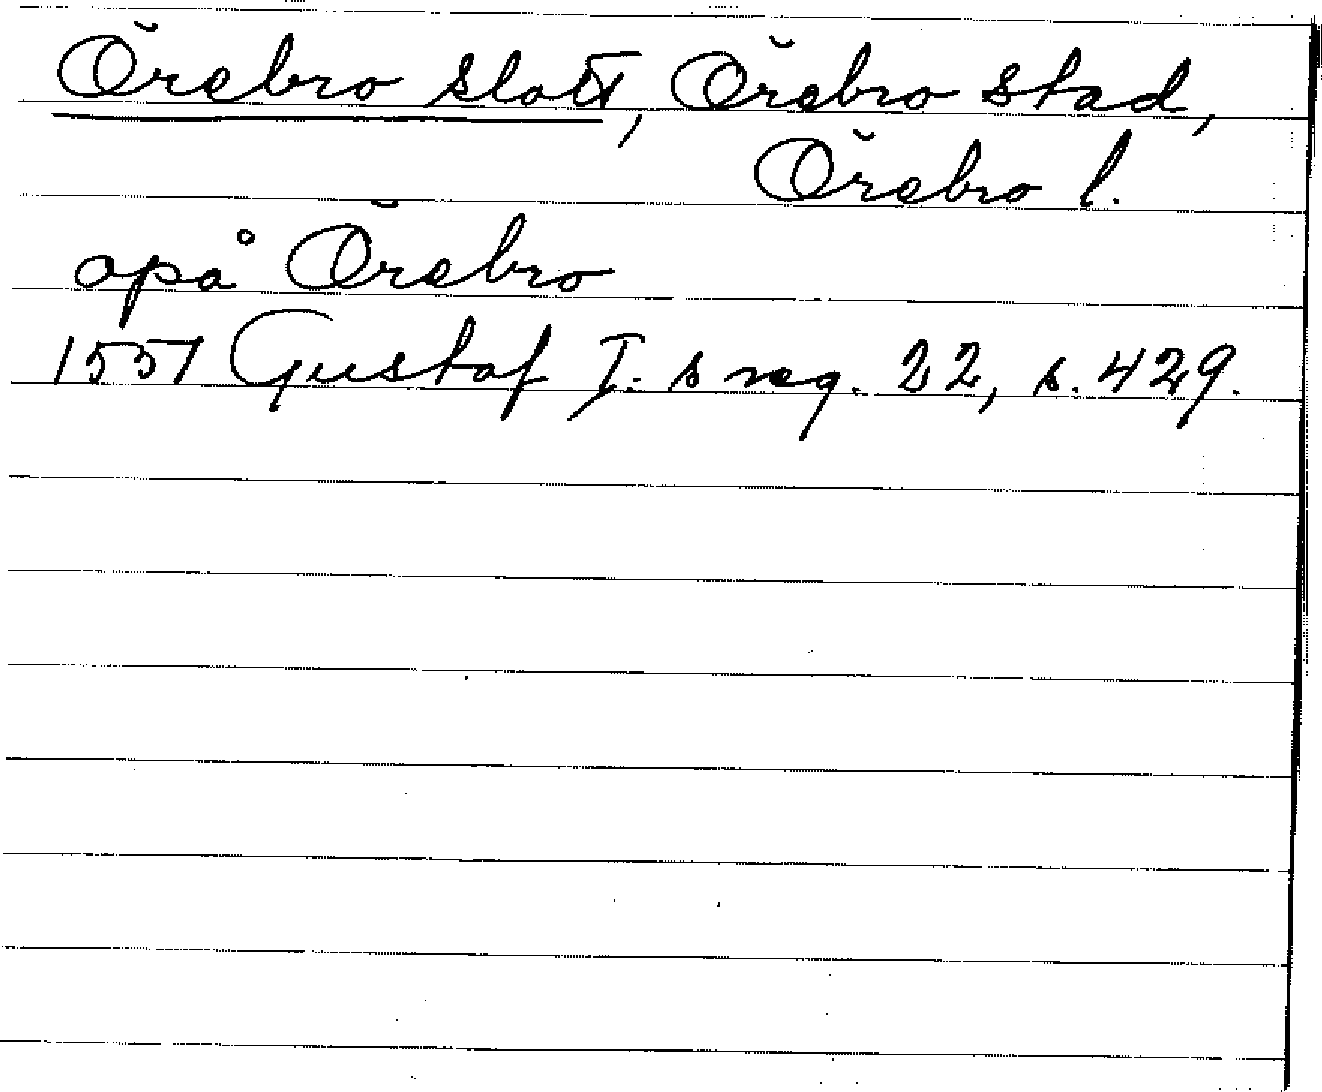 Örebro slott, Örebro stad,
Örebro l.
opå Örebro
1551 Gustaf I. s reg. 22, s. 429.